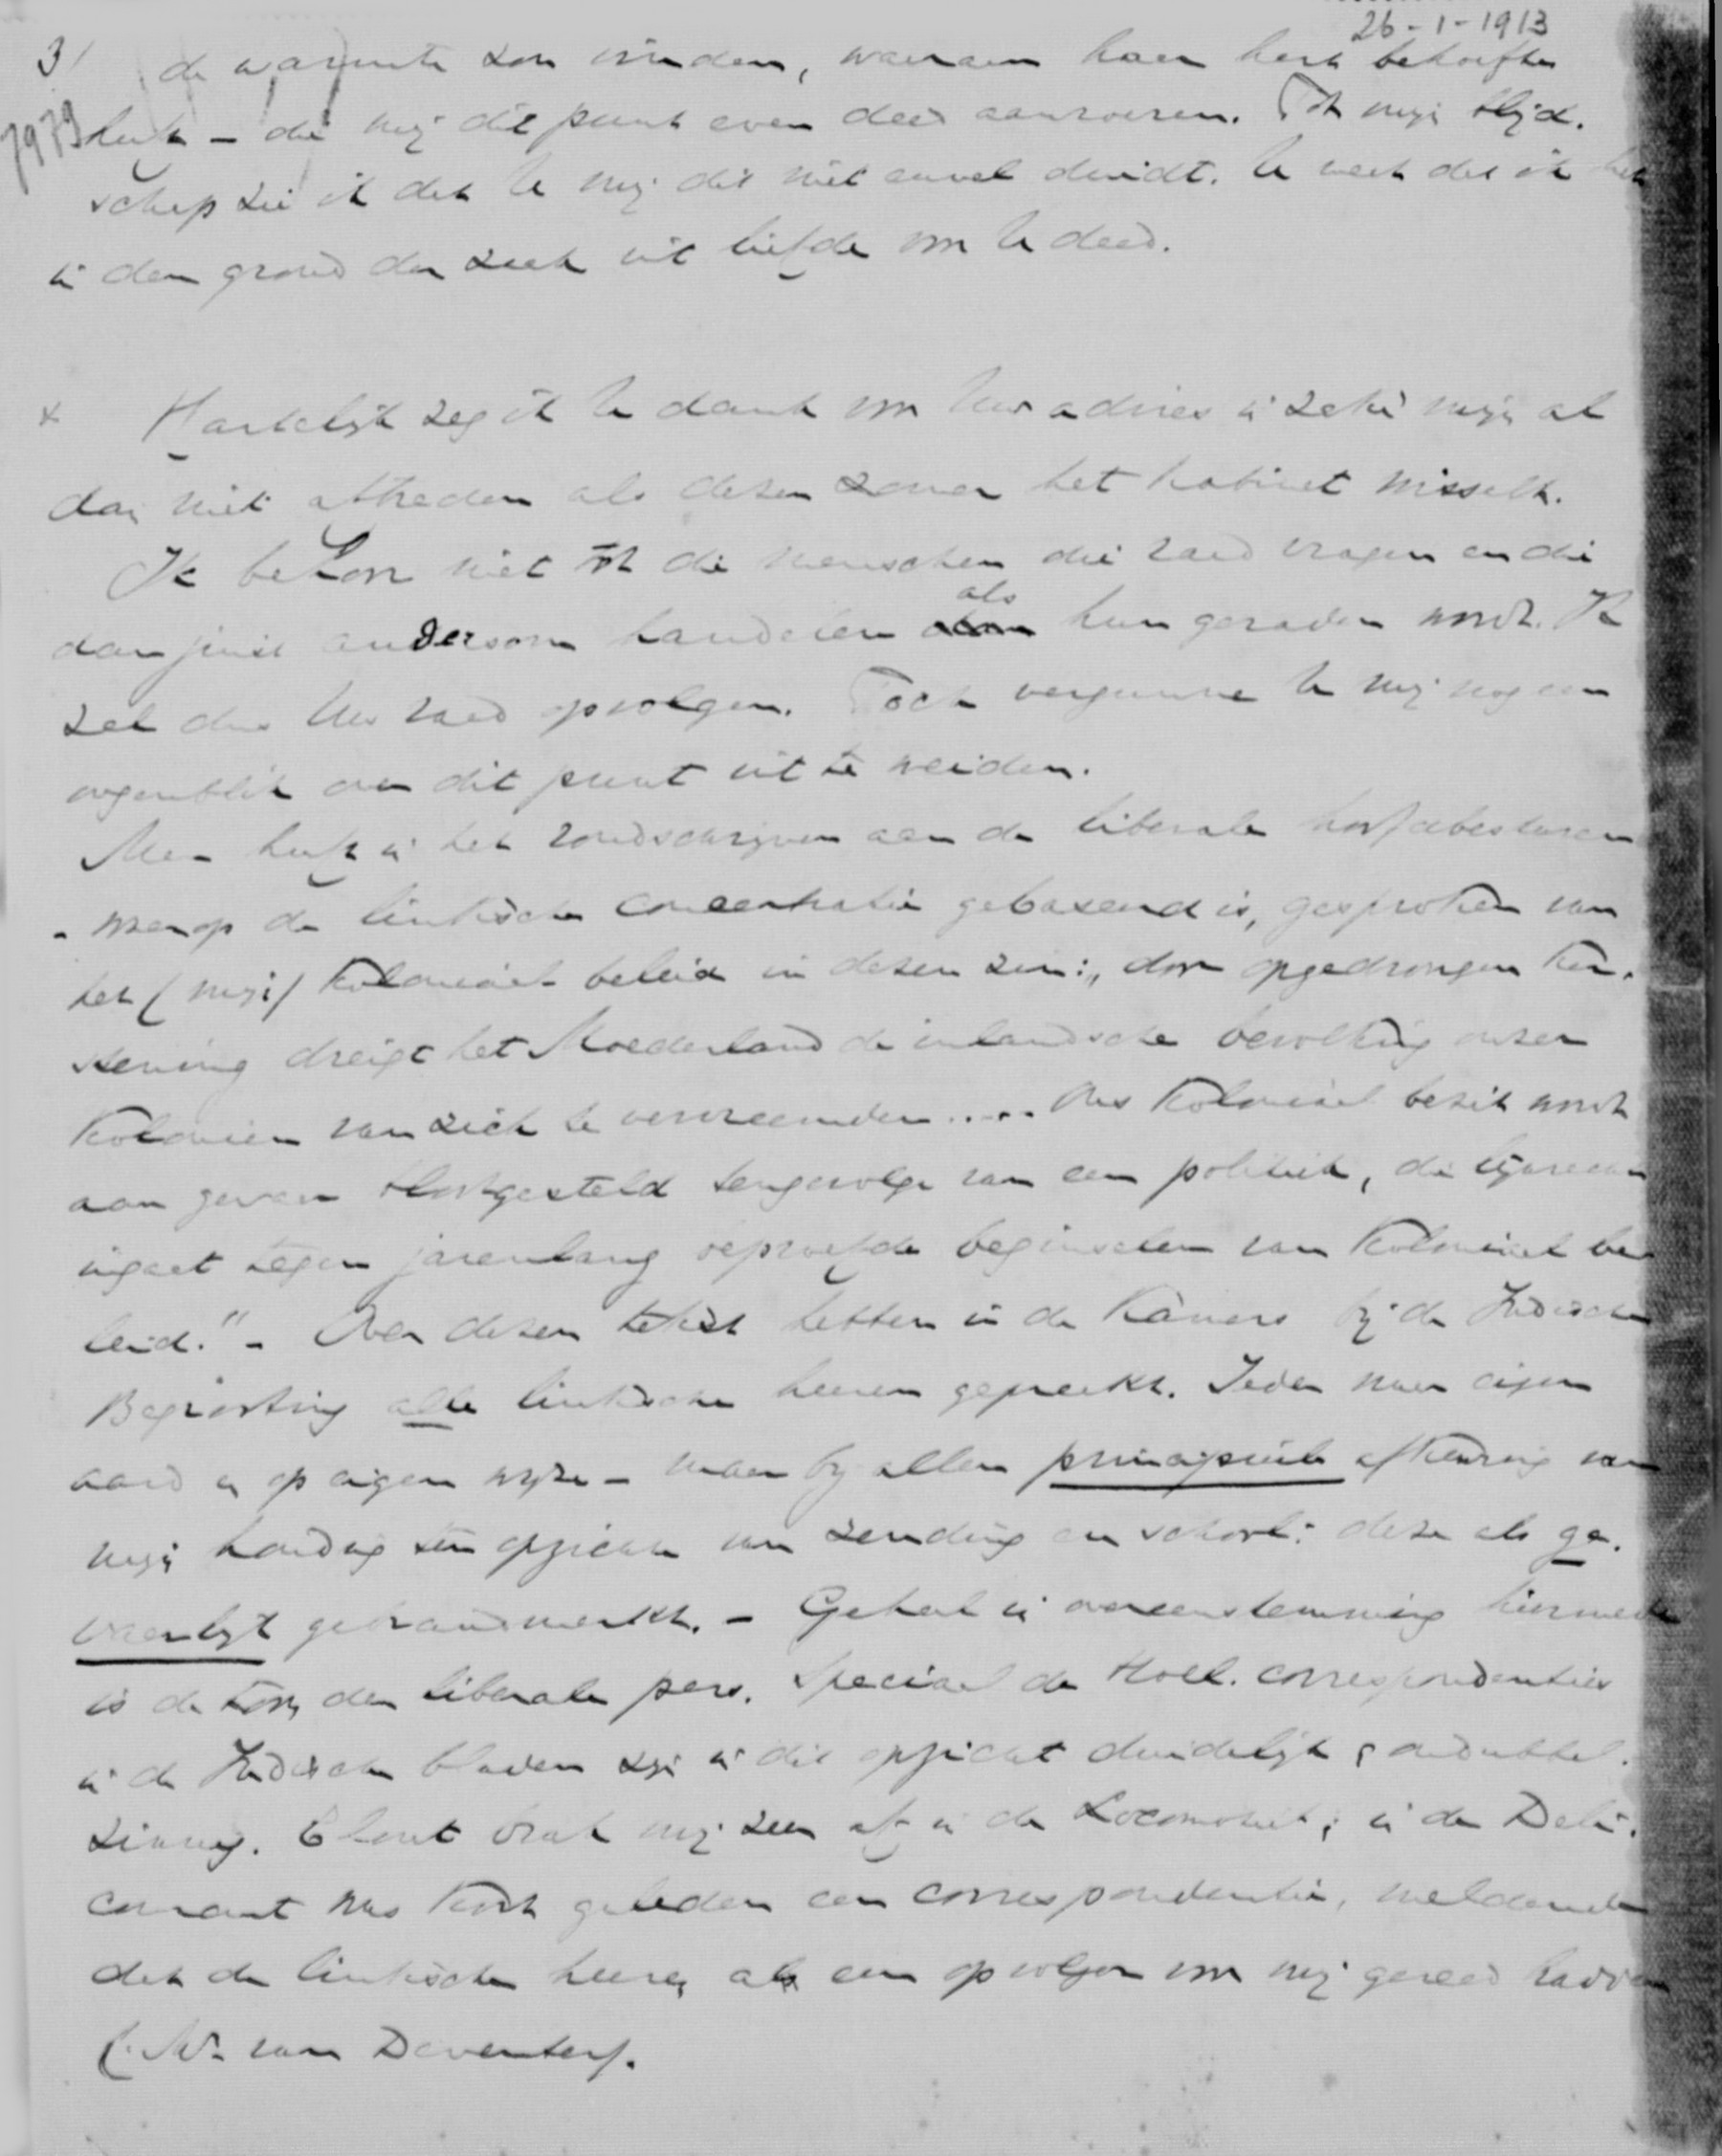 26-1-1913
3/ de warmte zou vinden, waaraan haar hart behoefte
7979 heeft - die mij dit punt even deed aanroeren. Tot mijn blijd-
schap zie ik dat U mij dit niet euvel duidt. U weet dat ik het
in den grond der zaak uit liefde voor U deed.
x Hartelijk zeg ik U dank voor Uw advies inzake mijn al
dan niet aftreden als dezen zomer het kabinet wisselt.
Ik behoor niet tot die menschen die raad vragen en die
dan juist andersom handelen als hun geraden wordt. Ik
zal dus Uw raad opvolgen. Toch vergunne U mij nog een
oogenblik over dit punt uit te weiden.
Men heeft in het rondschrijven aan de liberale hoofdbesturen
- waarop de linksche concentratie gebaseerd is, gesproken van
het (mijn) koloniaal beleid in dezen zin: „door opgedrongen ker-
stening dreigt het Moederland de inlandsche bevolking onzer
Koloniën van zich te vervreemden..... Ons Koloniaal bezit wordt
aan gevaren blootgesteld tengevolge van een politiek, die lijnrecht
ingaat tegen jarenlang beproefde beginselen van Koloniaal be-
leid." - Over dezen tekst hebben in de Kamers bij de Indische
Begrooting alle linksche heeren gepreekt. Ieder naar eigen
aard en op eigen wijze - maar bij allen principieele afkeuring van
mijn houding ten opzichte van zending en school: deze als ge-
vaarlijk gebrandmerkt. - Geheel in overeenstemming hiermede
is de toon der liberale pers. Speciaal de Holl. correspondenties
in de Indische bladen zijn in dit opzicht duidelijk en ondubbel-
zinnig. Elout brak mij zeer af in de Locomotief; in de Deli-
courant was kort geleden een correspondentie, meldende
dat de linksche heeren als een opvolger voor mij gereed hadden
(Mr. van Deventer).